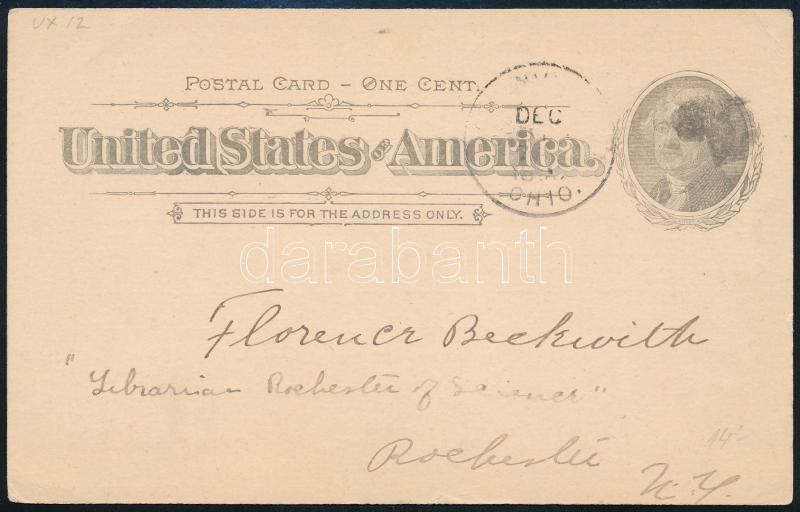 UX 12
POSTAL CARD – ONE CENT.
United States of America.
THIS SIDE IS FOR THE ADDRESS ONLY.
DEC
OHIO.
darabanth
Florence Beckwith
"Librarian Rochester of Science"
Rochester
N.Y.
14-